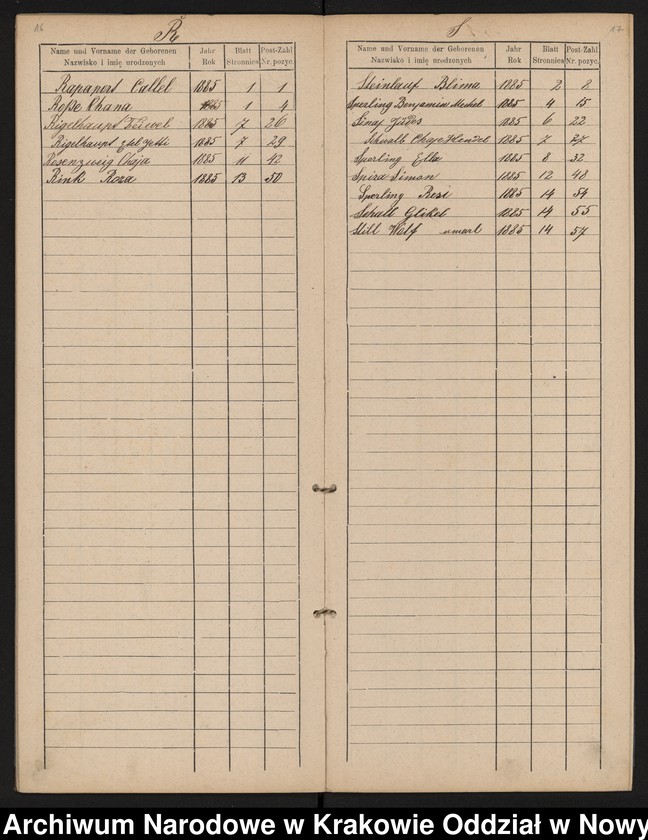 16
R
Name und Vorname der Geborenen Jahr Blatt Post-Zahl
Nazwisko i imię urodzonych Rok Stronnica Nr. pozyc.
Rapaport Callel 1885 1 1
Chana 1885 1 4
Rigelhaupt 1885 7 26
Rigelhaupt Ztel Jetti 1885 7 29
Rosenzweig Chaja 1885 11 42
Rink Roza 1885 13 50
17
S
Name und Vorname der Geborenen Jahr Blatt Post-Zahl
Nazwisko i imię urodzonych Rok Stronnica Nr. pozyc.
Steinlauf Blima 1885 2 8
Sperling Benjamin 1885 4 15
1885 6 22
Schwalb Chaje Hendel 1885 7 27
Sperling Ella 1885 8 32
Spira Simon 1885 12 48
Sperling Resi 1885 14 54
Schall Glikel 1885 14 55
Still Wolf umarł 1885 14 57
Archiwum Narodowe w Krakowie Oddział w Nowy